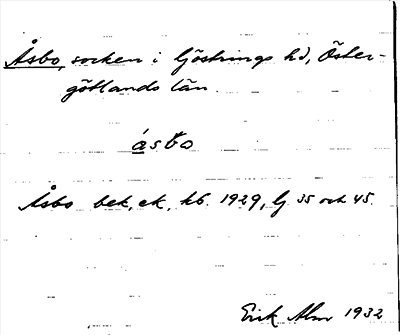 Åsbo, socken i Göstrings hd, Öster-
götlands län.
ásbo
Åsbo bek, ek, kb. 1929, bl 35 och 45.
Erik Alm 1932